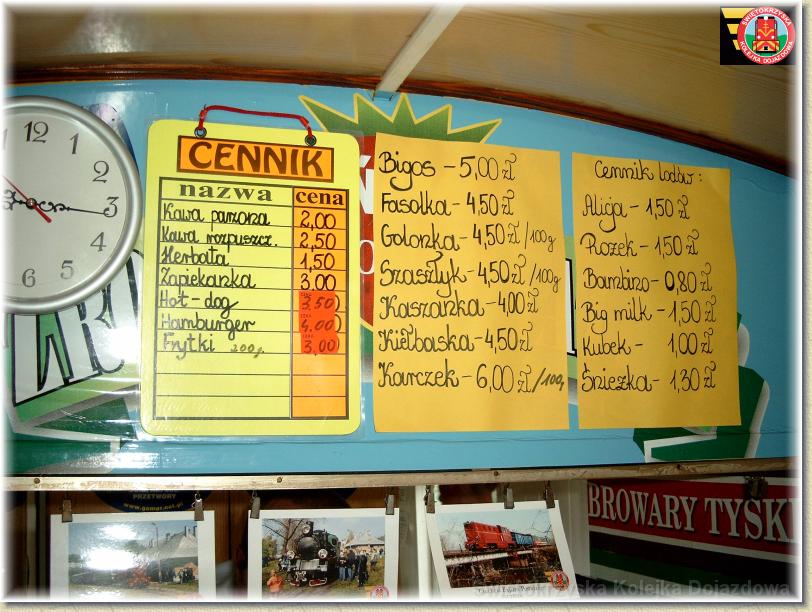 ŚWIĘTOKRZYSKA
KOLEJKA DOJAZDOWA
12
1
2
3
4
5
6
CENNIK
nazwa cena
Kawa parzona 2,00
Kawa rozpuszcz. 2,50
Herbata 1,50
Zapiekanka 3,00
Hot-dog 3,50
Hamburger 4,00
Frytki 200g. 3,00
Bigos – 5,00 zł
Fasolka – 4,50 zł
Golonka – 4,50 zł/100g
Szaszłyk – 4,50 zł/100g
Kaszanka – 4,00 zł
Kiełbaska – 4,50 zł
Karczek – 6,00 zł/100g
Cennik lodów:
Alicja – 1,50 zł
Rożek – 1,50 zł
Bambino – 0,80 zł
Big milk – 1,50 zł
Kubek – 1,00 zł
Śnieżka – 1,30 zł
PRZETWORY
www.gomar.net.pl
BROWARY TYSKI
Kolejka Dojazdowa